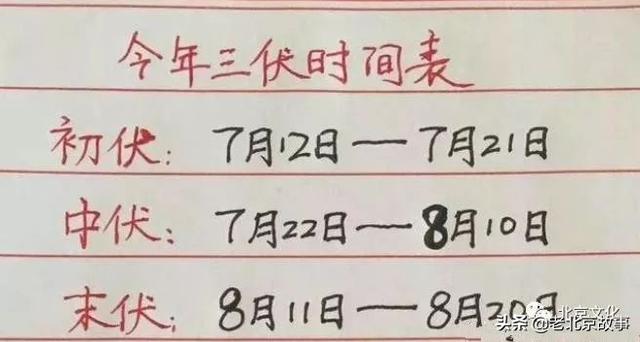 今年三伏时间表
初伏：7月12日—7月21日
中伏：7月22日—8月10日
末伏：8月11日—8月20日
北京文化
头条@老北京故事